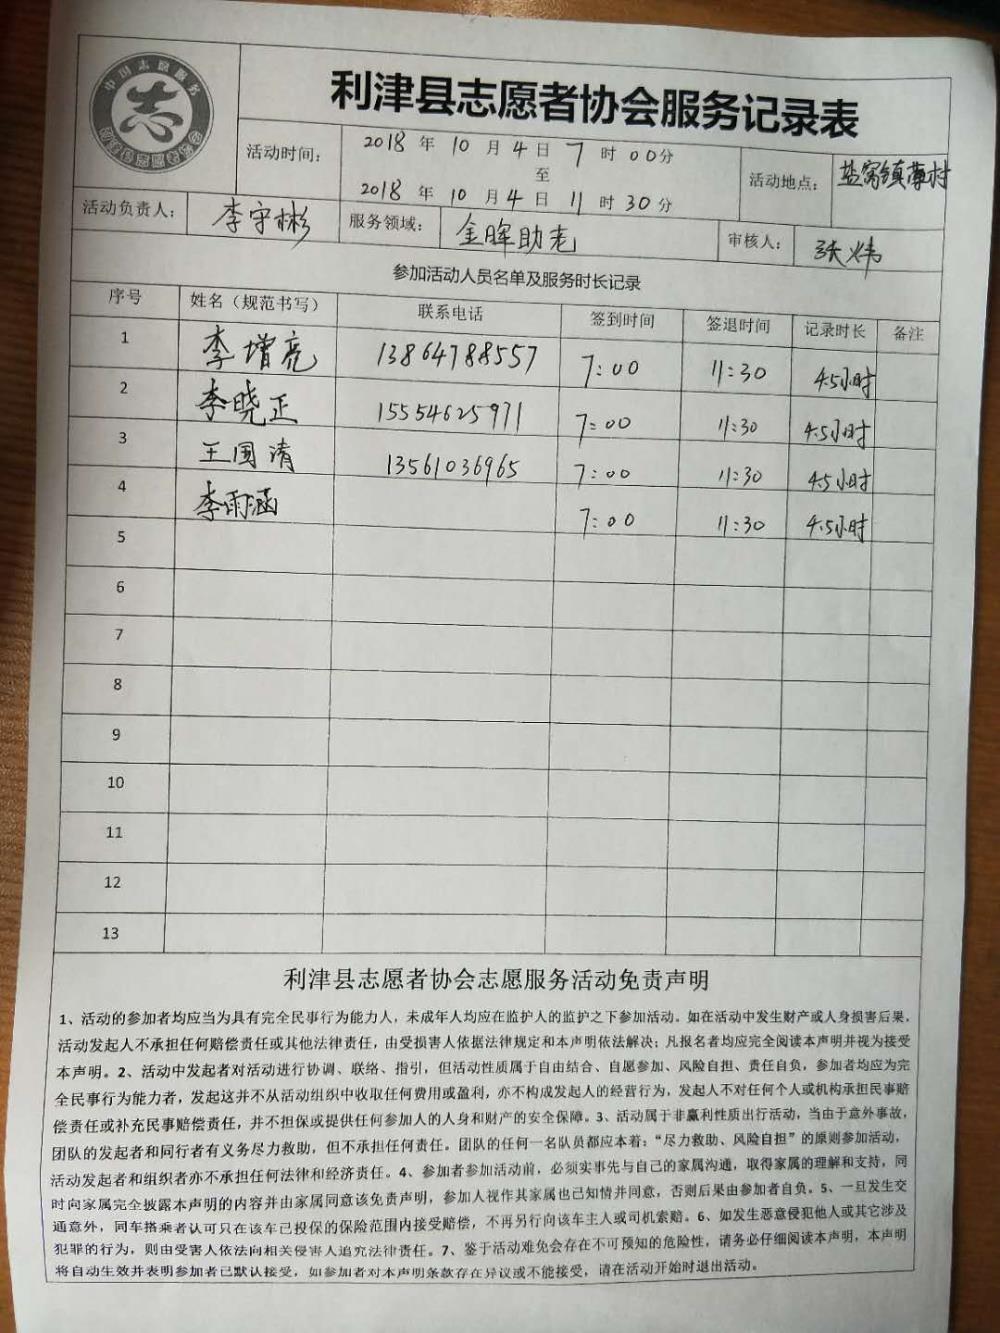 中国志愿服务
志
利津县志愿者协会服务记录表
活动时间： 2018 年 10 月 4 日 7 时 00 分
至
2018 年 10 月 4 日 11 时 30 分
活动地点： 盐窝镇薄村
活动负责人： 李守彬 服务领域： 金晖助老 审核人： 张炜
参加活动人员名单及服务时长记录
序号 姓名（规范书写） 联系电话 签到时间 签退时间 记录时长 备注
1 李增亮 13864788557 7:00 11:30 4.5小时
2 李晓正 15554625971 7:00 11:30 4.5小时
3 王国清 13561036965 7:00 11:30 4.5小时
4 李雨涵 7:00 11:30 4.5小时
5
6
7
8
9
10
11
12
13
利津县志愿者协会志愿服务活动免责声明
1、活动的参加者均应当为具有完全民事行为能力人，未成年人均应在监护人的监护之下参加活动。如在活动中发生财产或人身损害后果，
活动发起人不承担任何赔偿责任或其他法律责任，由受损害人依据法律规定和本声明依法解决；凡报名者均应完全阅读本声明并视为接受
本声明。2、活动中发起者对活动进行协调、联络、指引，但活动性质属于自由结合、自愿参加、风险自担、责任自负，参加者均应为完
全民事行为能力者，发起这并不从活动组织中收取任何费用或盈利，亦不构成发起人的经营行为，发起人不对任何个人或机构承担民事赔
偿责任或补充民事赔偿责任，并不担保或提供任何参加人的人身和财产的安全保障。3、活动属于非赢利性质出行活动，当由于意外事故，
团队的发起者和同行者有义务尽力救助，但不承担任何责任。团队的任何一名队员都应本着：“尽力救助、风险自担”的原则参加活动，
活动发起者和组织者亦不承担任何法律和经济责任。4、参加者参加活动前，必须实事先与自己的家属沟通，取得家属的理解和支持，同
时向家属完全披露本声明的内容并由家属同意该免责声明，参加人视作其家属也已知情并同意，否则后果由参加者自负。5、一旦发生交
通意外，同车搭乘者认可只在该车已投保的保险范围内接受赔偿，不再另行向该车主人或司机索赔。6、如发生恶意侵犯他人或其它涉及
犯罪的行为，则由受害人依法向相关侵害人追究法律责任。7、鉴于活动难免会存在不可预知的危险性，请务必仔细阅读本声明，本声明
将自动生效并表明参加者已默认接受，如参加者对本声明条款存在异议或不能接受，请在活动开始时退出活动。